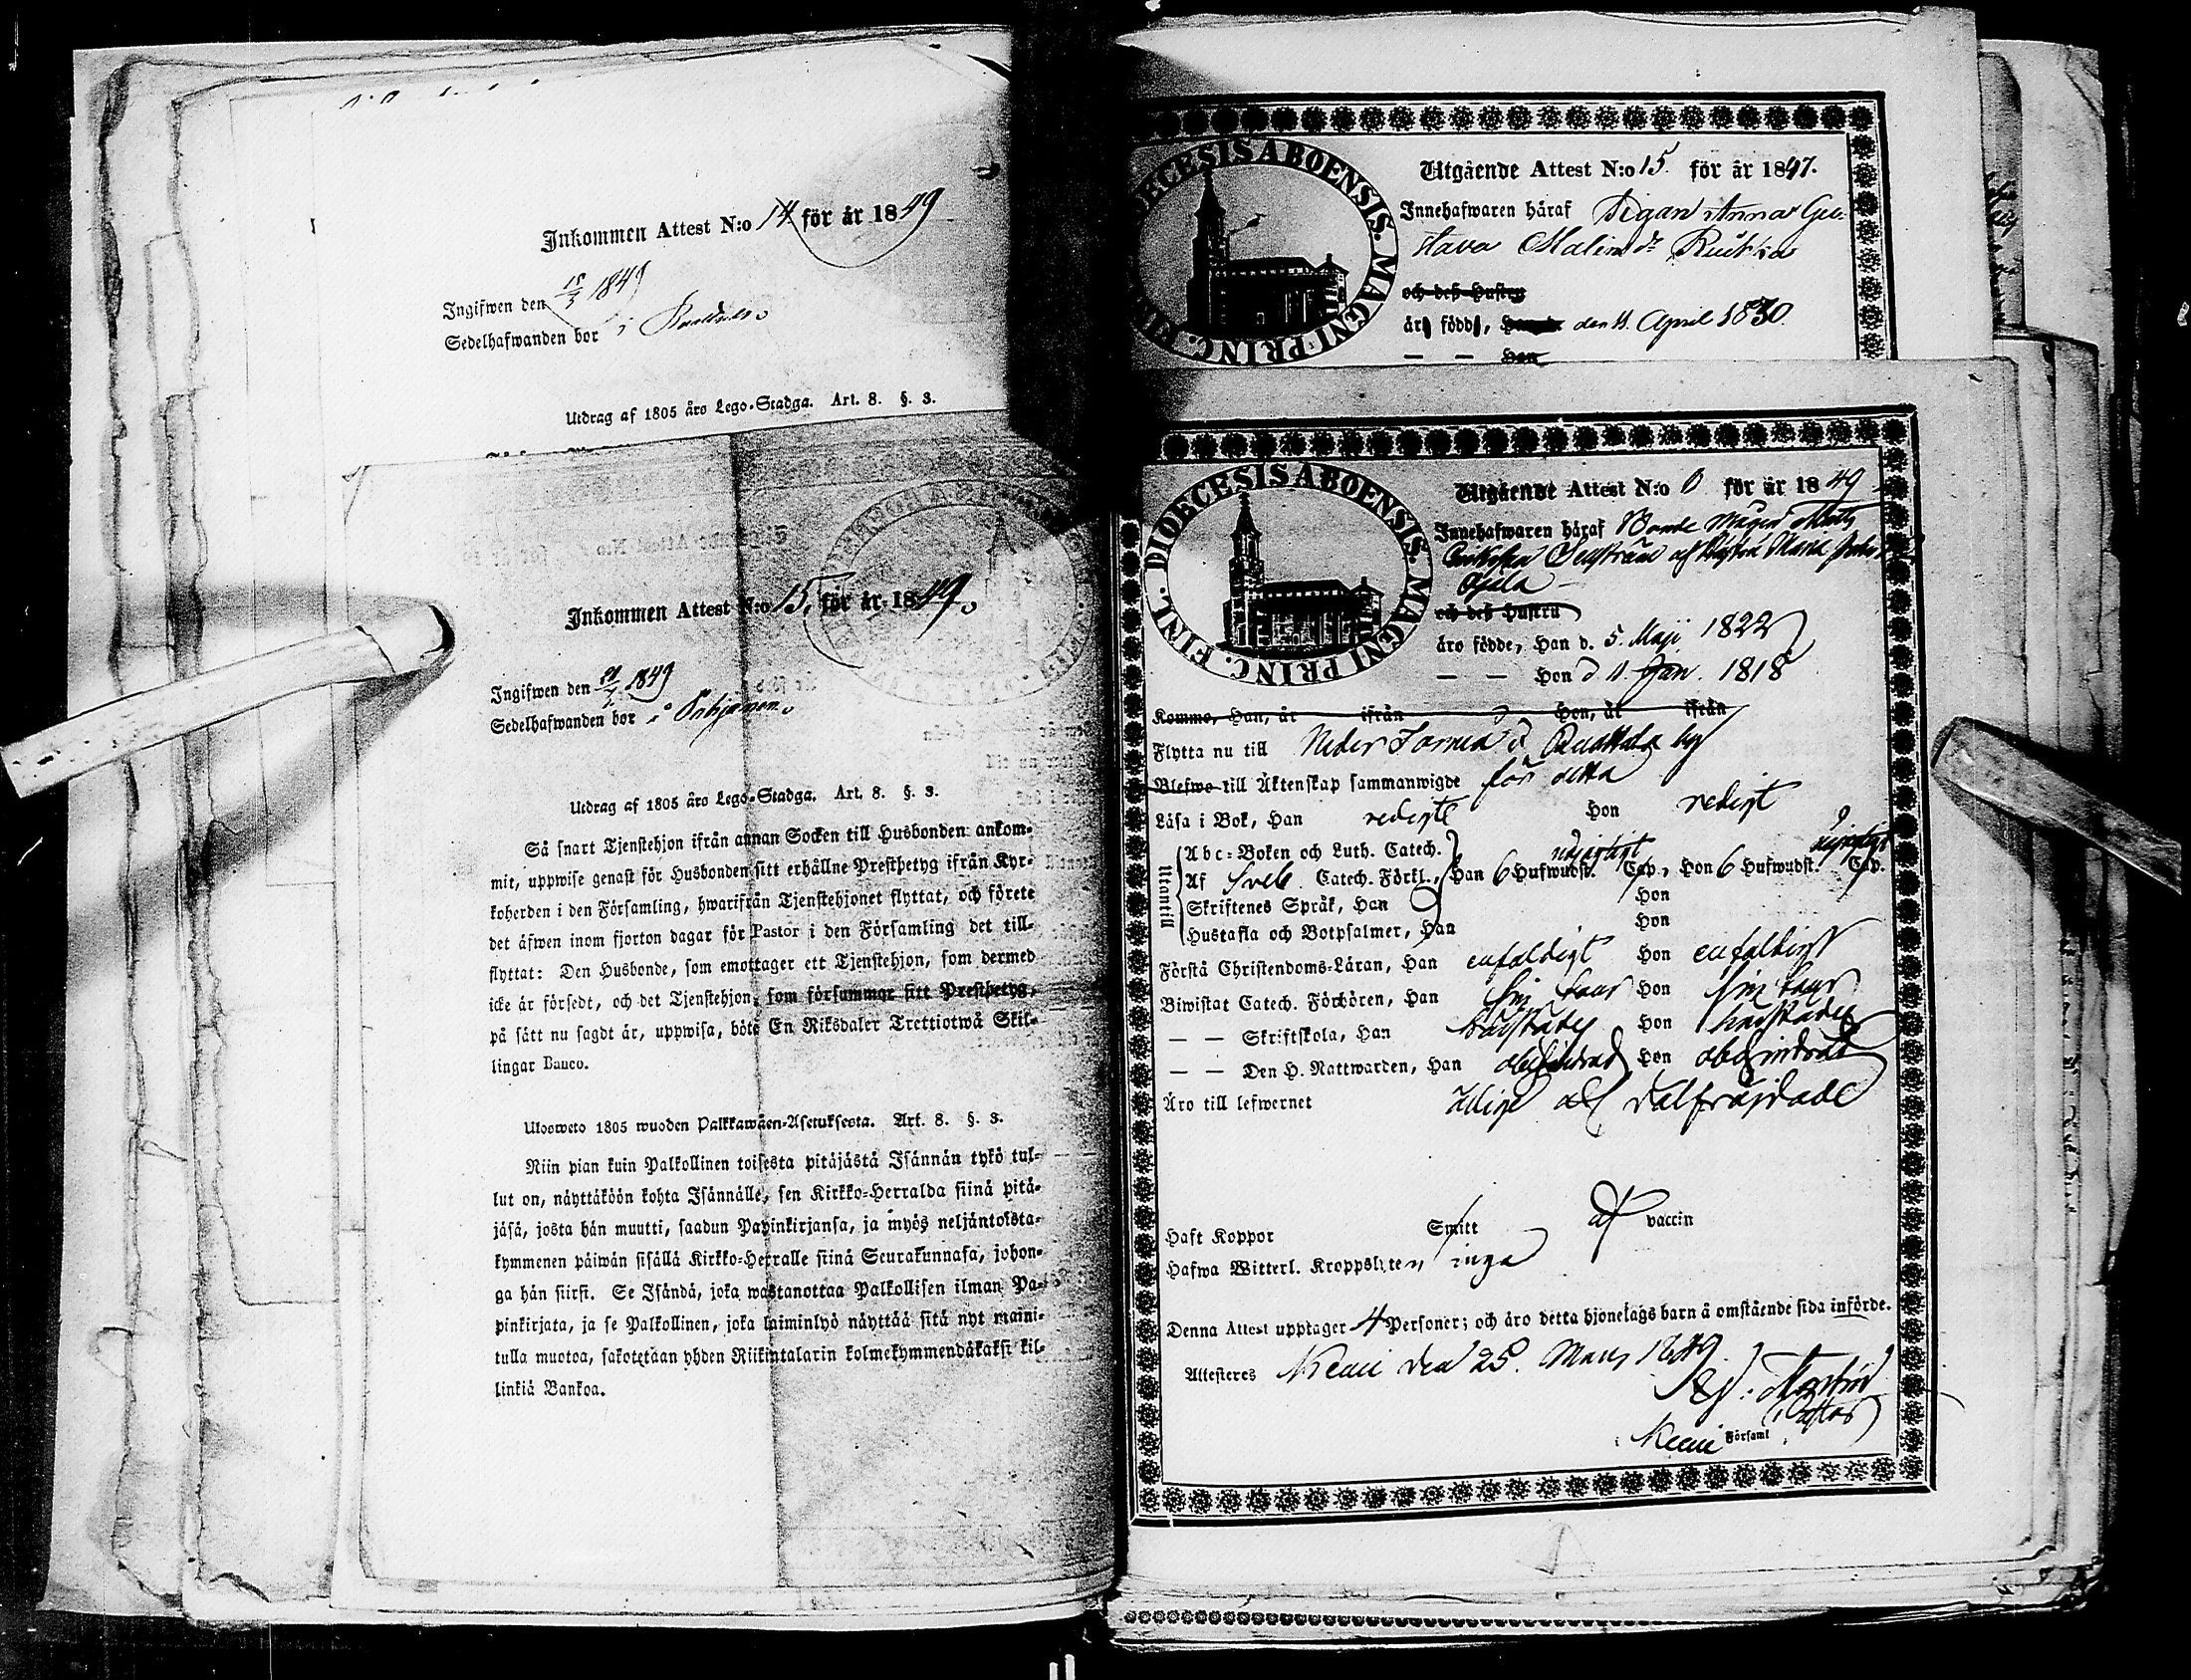 Inkommen Attest N:o 14 för år 1849
Ingifwen den 15/3 1849
Sedelhafwanden bor i
Utdrag af 1805 års Lego-Stadga. Art. 8. §. 3.
Inkommen Attest N:o 15, för år 1849.
Ingifwen den 1849
Sedelhafwanden bor i
Utdrag af 1805 års Lego-Stadga. Art. 8. §. 3.
Så snart Tjenstehjon ifrån annan Socken till Husbonden ankom-
mit, uppwise genast för Husbonden sitt erhållne Prestbetyg ifrån Kyr-
koherden i den Församling, hwarifrån Tjenstehjonet flyttat, och förete
det äfwen inom fjorton dagar för Pastor i den Församling det till-
flyttat: Den Husbonde, som emottager ett Tjenstehjon, som dermed
icke är försedt, och det Tjenstehjon, som försummar sitt Prestbetyg,
på sätt nu sagdt är, uppwisa, böte En Riksdaler Trettiotwå Skil-
lingar Banco.
Ulosweto 1805 wuoden Palkkawäen-Asetuksesta. Art. 8. §. 3.
Niin pian kuin Palkollinen toisesta pitäjästä Isännän tykö tul-
lut on, näyttäköön kohta Isännälle, sen Kirkko-Herralda siinä pitä-
jäsä, josta hän muutti, saadun Papinkirjansa, ja myös neljäntoista-
kymmenen päiwän sisällä Kirkko-Herralle siinä Seurakunnasa, johon-
ga hän siirsi. Se Isändä, joka wastanottaa Palkollisen ilman Pa-
pinkirjata, ja se Palkollinen, joka laiminlyö näyttää sitä nyt maini-
tulla muotoa, sakotetaan yhden Riikintalarin kolmekymmendäkaksi kil-
linkiä Bankoa.
DIOECESIS ABOENSIS. MAGNI PRINC. FINL.
Utgående Attest N:o 15. för år 1847.
Innehafwaren häraf Pigan Anna Gu-
stava Malims dr
och dess Hustru
är född, den 11. April 1830.
— — Hon
DIOECESIS ABOENSIS. MAGNI PRINC. FINL.
Utgående Attest N:o för år 1849
Innehafwaren häraf Bonde Mågen Matts
Hustru Maria
och dess Hustru
äro födde, Han d. 5. Maji 1822
— — Hon d 11. Jan. 1818
Komme, Han, år ifrån Hon, år ifrån
Flytta nu till Neder Torneå by
Blefwo till Äktenskap sammanwigde för detta
Läsa i Bok, Han redigt Hon redigt
Utantill
Abc-Boken och Luth. Catech.
Af Sveb. Catech. Förkl., Han 6 Hufwudst. Cap., Hon 6 Hufwudst. Cap.
Skriftenes Språk, Han Hon
Hustafla och Botpsalmer, Han Hon
Förstå Christendoms-Läran, Han enfaldigt Hon enfaldigt
Biwistat Catech. Förhören, Han Hon
— — Skriftskola, Han Hon
— — Den H. Nattwarden, Han obehindrad Hon obehindrad
Äro till lefwernet välfräjdade
Haft Koppor Smitt af vaccin
Hafwa Witterl. Kroppslyten inga
Denna Attest upptager 4 Personer; och äro detta hjonelags barn å omstående sida införde.
Attesteres Kemi den 25. Mars 1849.
Pastor
i Kemi Församl.